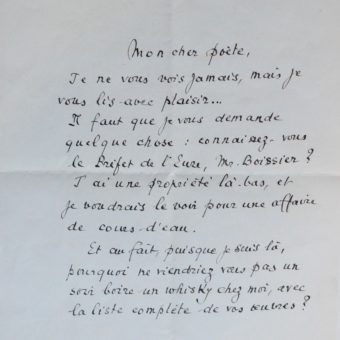 Mon cher poète,
Je ne vous vois jamais, mais je
vous lis avec plaisir...
Il faut que je vous demande
quelque chose : connaissez-vous
le Préfet de l'Eure, Mr. Boissier ?
J'ai une propriété là-bas, et
je voudrais le voir pour une affaire
de cours-d'eau.
Et au fait, puisque je suis là,
pourquoi ne viendriez vous pas un
soir boire un whisky chez moi, avec
la liste complète de vos œuvres ?